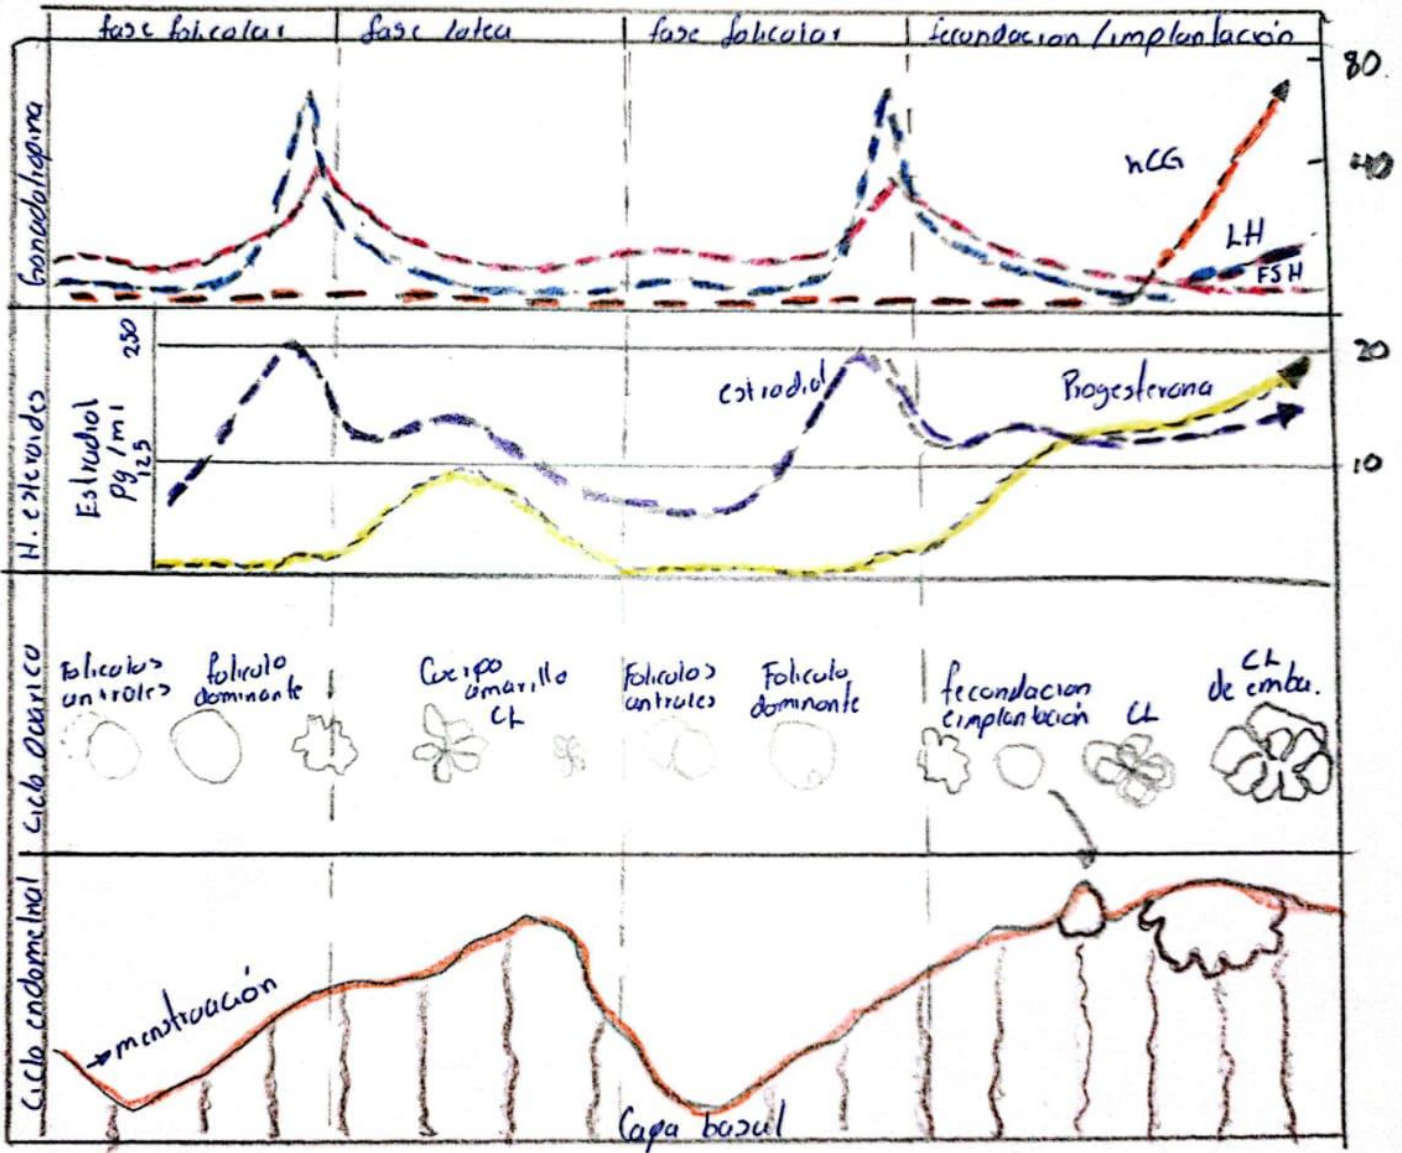 fase folicular
fase lutea
fase folicular
fecundacion / implantación
Gonadotropina
80
40
hCG
LH
FSH
H. esteroides
Estradiol
pg/ml
250
125
estradiol
Progesterona
20
10
Ciclo Ovarico
Foliculos
antrales
foliculo
dominante
Cuerpo
amarillo
CL
Foliculos
antrales
Foliculo
dominante
fecondacion
eimplantación
CL
CL
de emba.
Ciclo endometrial
menstruación
Capa basal